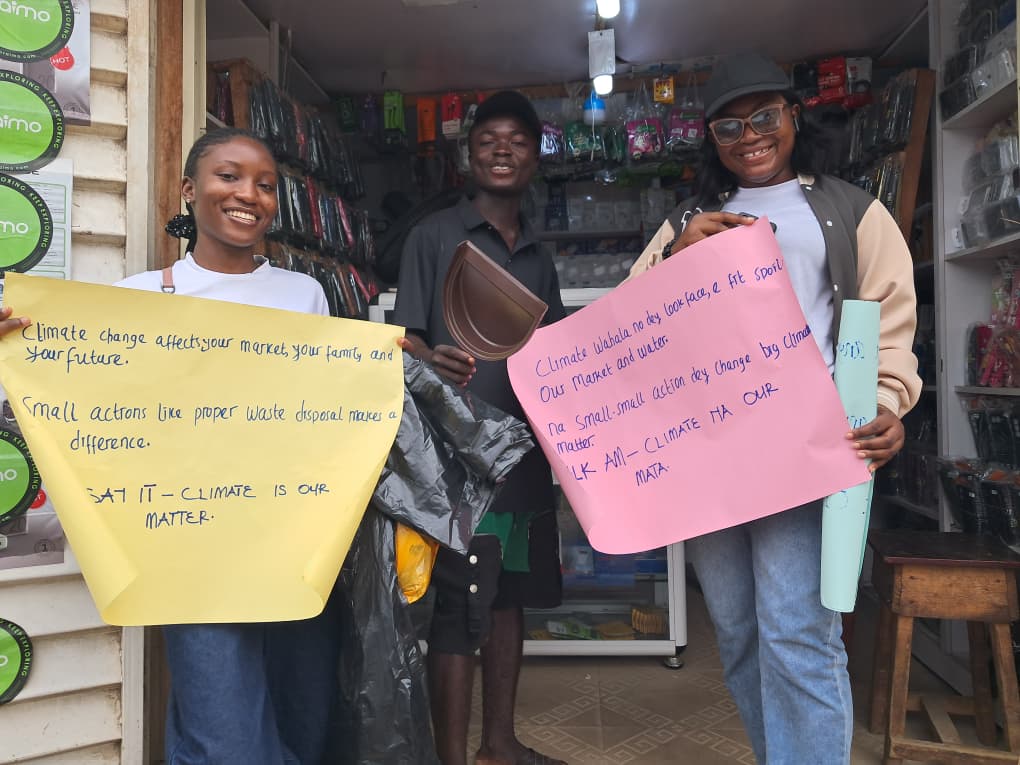 aimo
HOT
KEEP EXPLORING
aimo
imo
mo
Climate change affects your market, your family and
your future.
Small actions like proper waste disposal makes a
difference.
SAY IT - CLIMATE IS OUR
MATTER.
Climate Wahala no dey look face, e fit spoil
Our Market and water.
na small-small action dey change big Climate
matter.
LK AM - CLIMATE NA OUR
MATA.